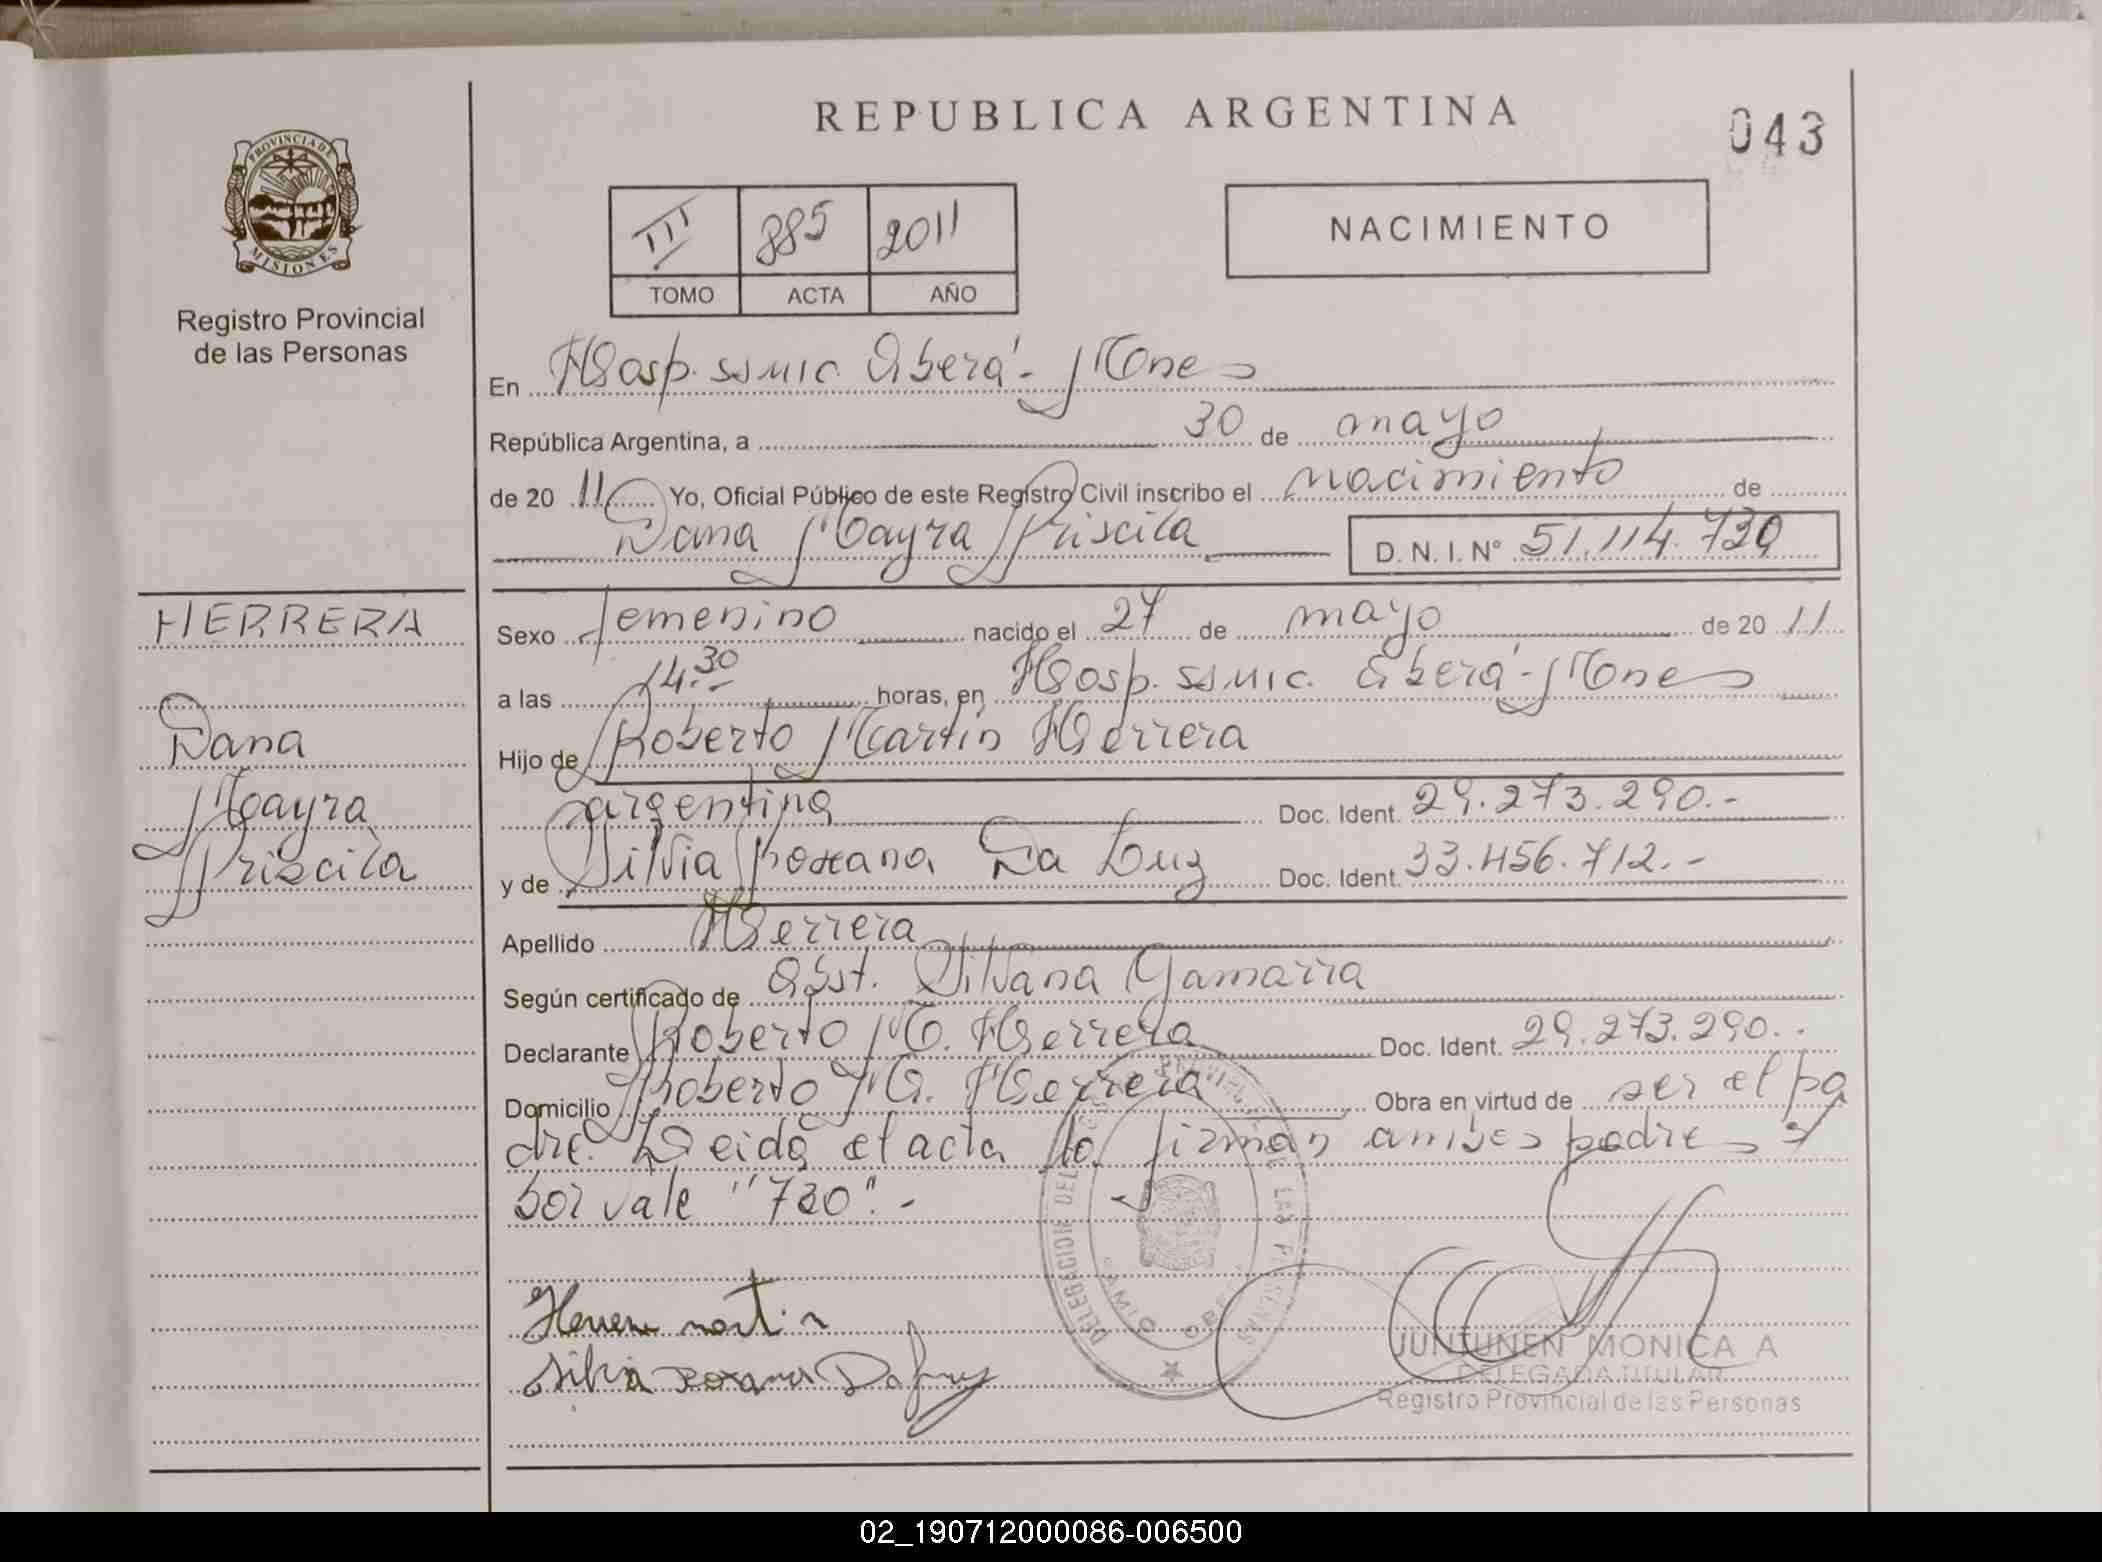 REPUBLICA ARGENTINA
043
PROVINCIA DE
MISIONES
Registro Provincial
de las Personas
III 885 2011
TOMO ACTA AÑO
NACIMIENTO
En Hosp. SSMIC. Oberá - Mnes
República Argentina, a 30 de mayo
de 20 11 Yo, Oficial Público de este Registro Civil inscribo el nacimiento de
Dana Mayra Priscila D. N. I. N° 51.114.730
HERRERA
Dana
Mayra
Priscila
Sexo femenino nacido el 27 de mayo de 20 11
a las 14.30 horas, en Hosp. SSMIC. Oberá - Mnes
Hijo de Roberto Martin Herrera
argentina Doc. Ident. 29.273.290.-
y de Silvia Roxana Da Luz Doc. Ident. 33.456.712.-
Apellido Herrera
Según certificado de Obst. Silvana Gamarra
Declarante Roberto M. Herrera Doc. Ident. 29.273.290.-
Domicilio Roberto M. Herrera Obra en virtud de ser el pa
dre. Leida el acta la firman ambos padres. S/
bor vale "730".-
Herrera martin
Silvia Roxana Da Luz
DELEGACION DEL LAS PERSONAS
JUNTUNEN MONICA A
DELEGADA TITULAR
Registro Provincial de las Personas
02_190712000086-006500